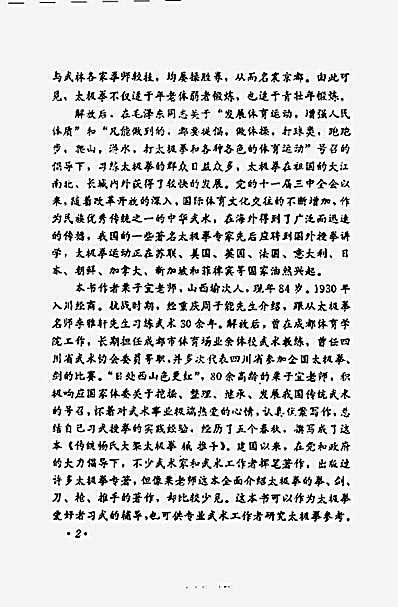 与武林各家拳师较技，均屡操胜券，从而名震京都。由此可
见，太极拳不仅适于年老体弱者锻炼，也适于青壮年锻炼。
解放后，在毛泽东同志关于“发展体育运动，增强人民
体质”和“凡能做到的，都要提倡，做体操，打球类，跑跑
步，爬山，游水，打太极拳和各种各色的体育运动”号召的
倡导下，习练太极拳的群众日益众多，太极拳在祖国的大江
南北、长城内外获得了较快的发展。党的十一届三中全会以
来，随着改革开放的深入，国际体育文化交往的不断增加，作
为民族优秀传统之一的中华武术，在海外得到了广泛而迅速
的传播，我国的一些著名太极拳专家先后应聘到国外授拳讲
学，太极拳运动正在苏联、美国、英国、法国、意大利、日
本、朝鲜、加拿大、新加坡和菲律宾等国家油然兴起。
本书作者栗子宜老师，山西榆次人，现年84岁。1930年
入川经商。抗战时期，经重庆周子能先生介绍，跟从太极拳
名师李雅轩先生习练武术30余年。解放后，曾在成都体育学
院工作，长期担任成都市体育场业余体校武术教练，曾任四
川省武术协会委员等职，并多次代表四川省参加全国太极拳、
剑的比赛。“日处西山色更红”，80余高龄的栗子宜老师，积
极响应国家体委关于挖掘、整理、继承、发展我国传统武术
的号召，怀着对武术事业极端热爱的心情，认真伏案写作，总
结自己习武授拳的实践经验，经历了五个春秋，撰写成了这
本《传统杨氏大架太极拳 械 推手》。建国以来，在党和政府
的大力倡导下，不少武术家和武术工作者挥笔著作，出版过
许多太极拳专著，但像栗老师这本全面介绍太极拳的拳、剑、
刀、枪、推手的著作，却比较少见。这本书可以作为太极拳
爱好者习武的辅导，也可供专业武术工作者研究太极拳参考。
·2·